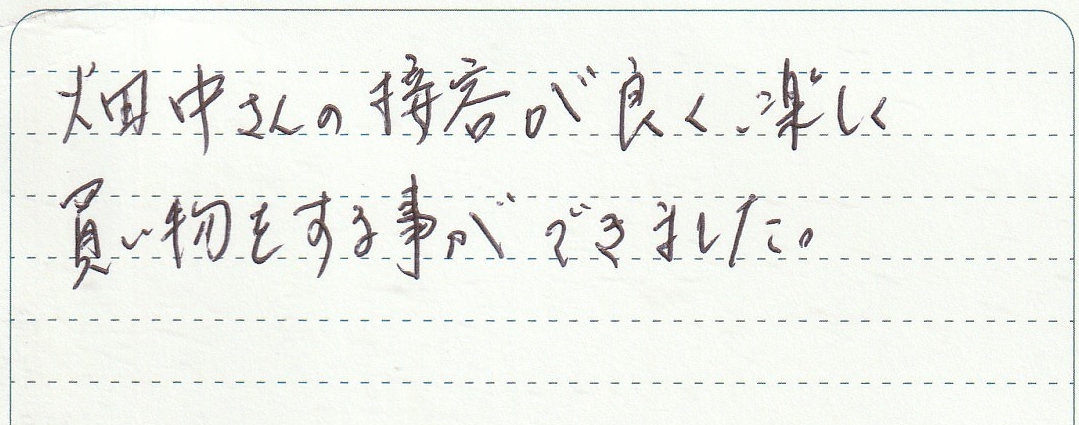 畑中さんの接客が良く、楽しく
買い物をする事ができました。